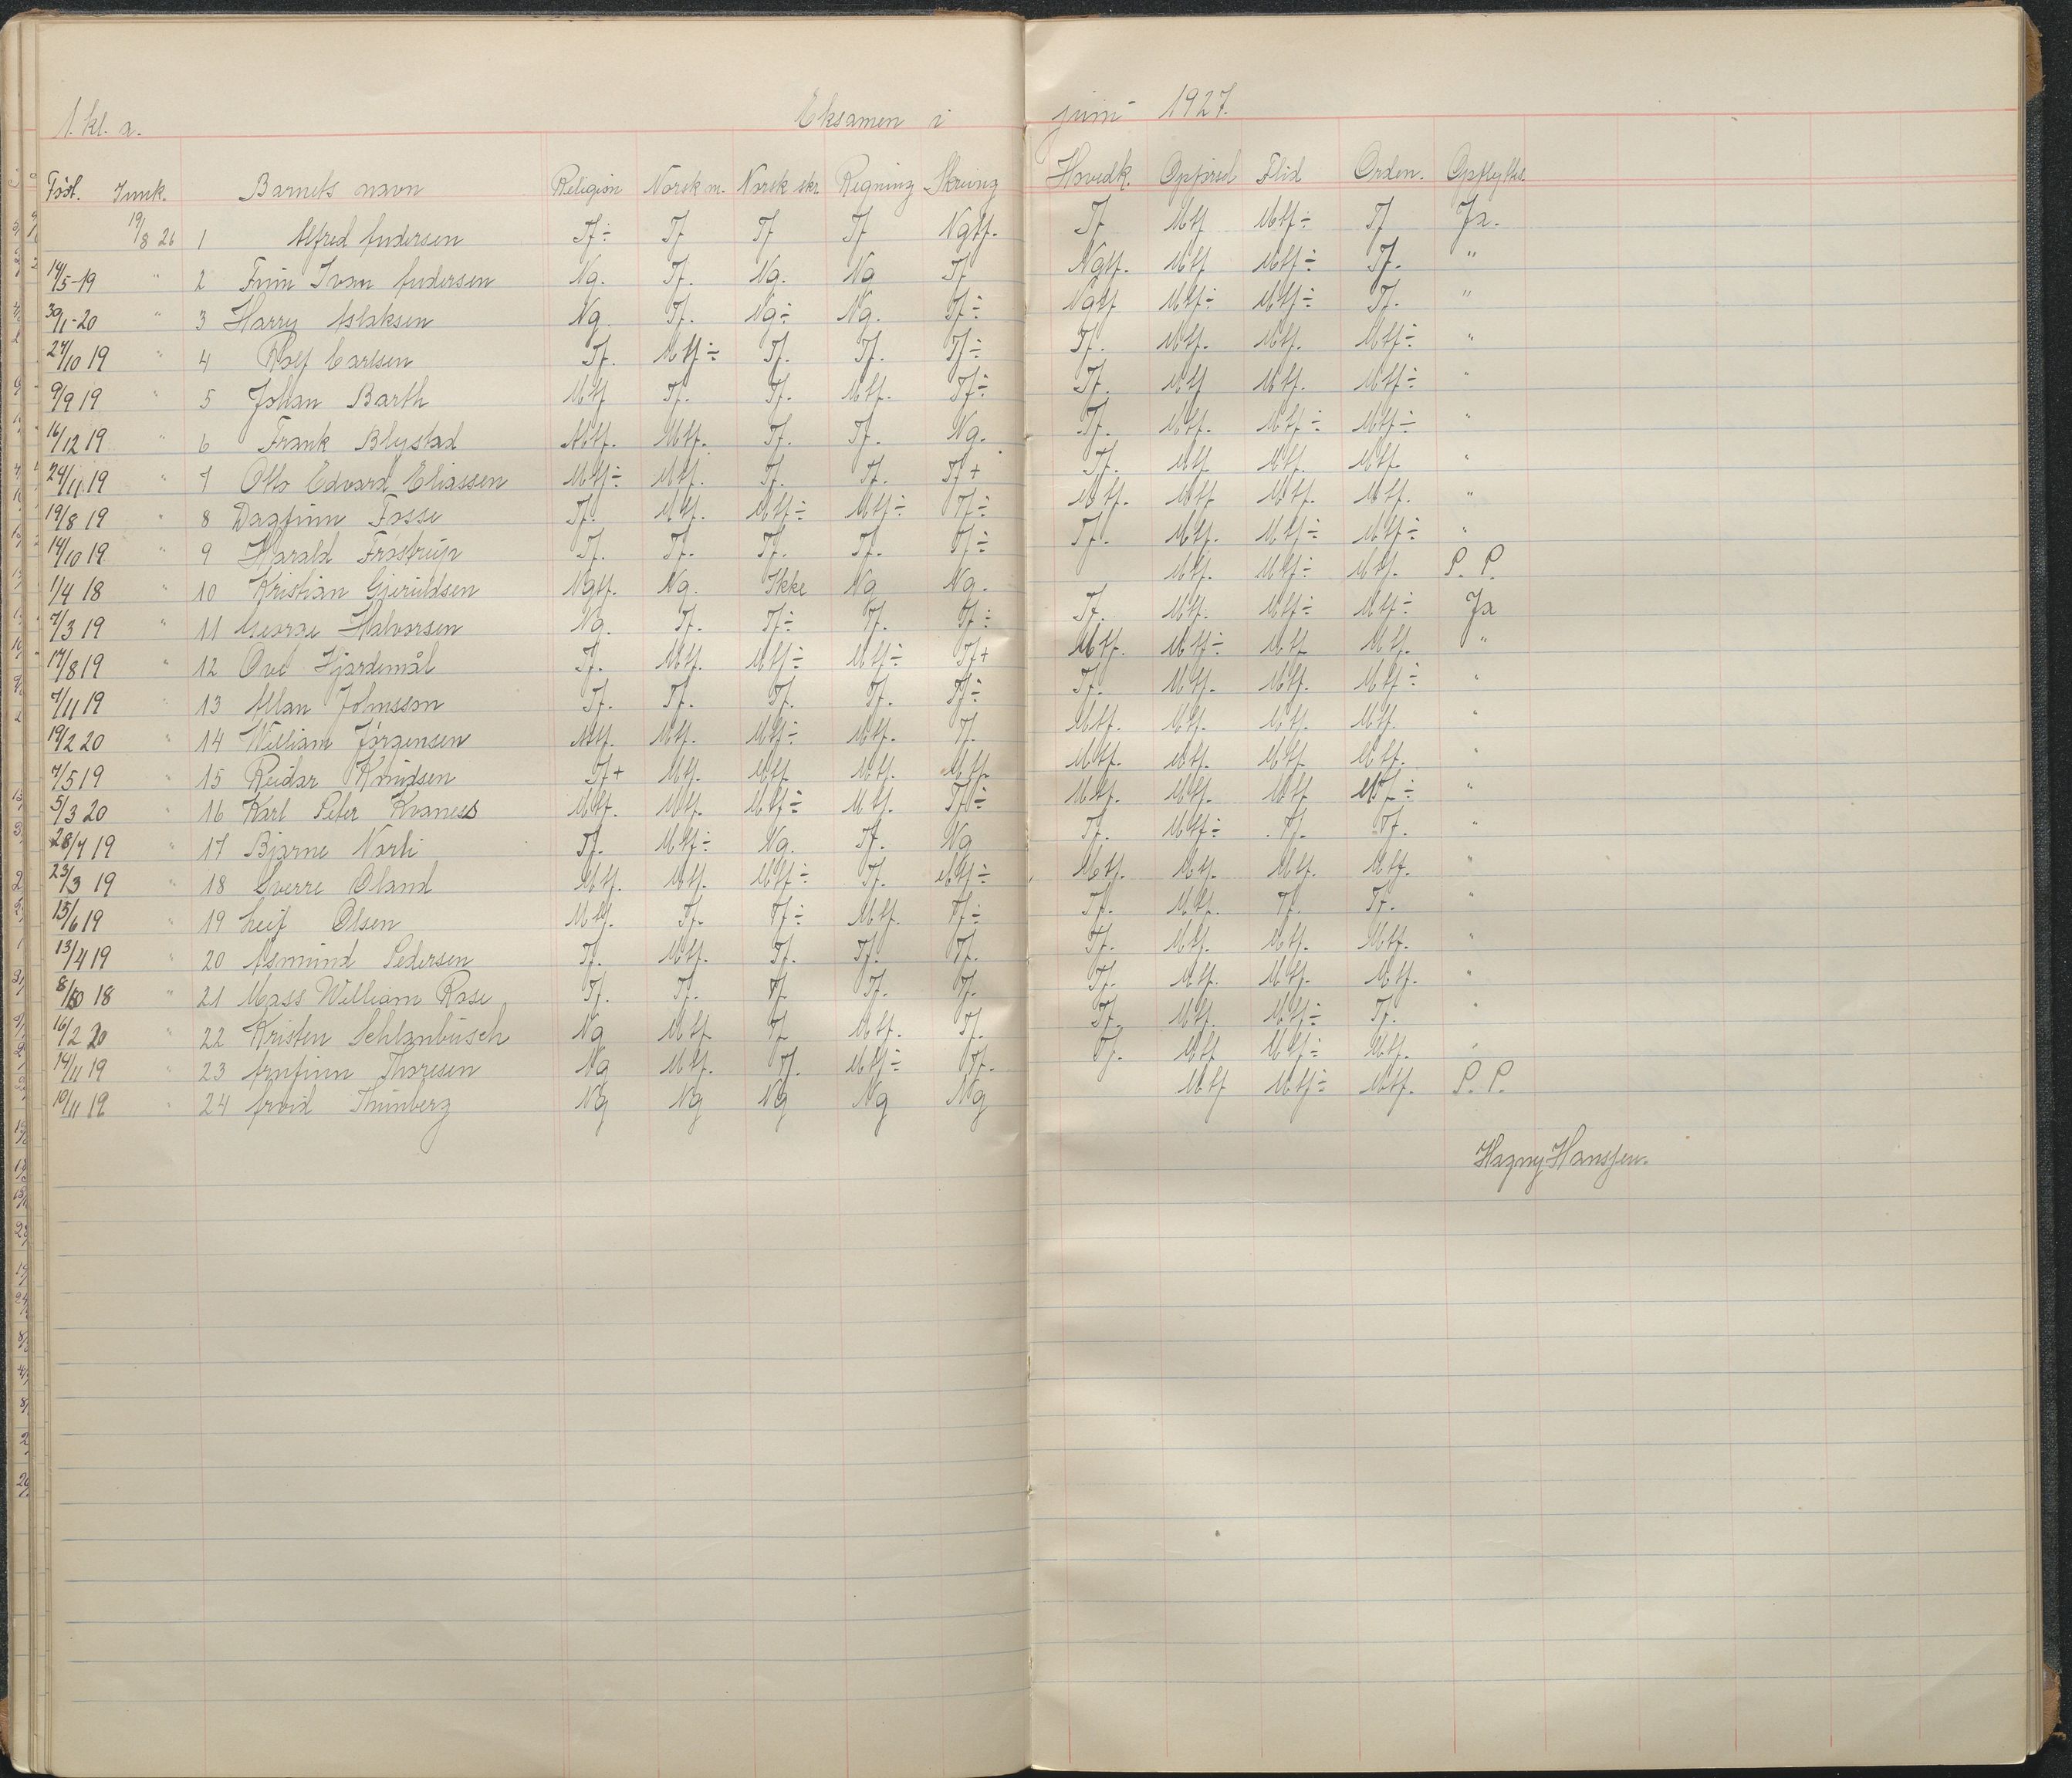 1. kl. a. Eksamen i juni 1927.
Født. Innk. Barnets navn Religion Norsk m. Norsk skr. Regning Skriving Hovedk. Opførsel Flid Orden. Opflyttes
19/8 26 1 Alfred Andersen Tf÷ Tf Tf Tf Ngtf. Tf Mtf Mtf÷ Tf Ja.
14/5-19 " 2 Finn Ivan Andersen Ng. Tf. Ng. Ng Tf Ngtf. Mtf Mtf÷ Tf. "
30/1-20 " 3 Harry Aslaksen Ng. Tf. Ng÷ Ng. Tf÷ Ngtf Mtf÷ Mtf÷ Tf. "
27/10 19 " 4 Rolf Carlsen Tf. Mtf÷ Tf. Tf. Tf÷ Tf. Mtf. Mtf. Mtf÷ "
9/9 19 " 5 Johan Barth Mtf Tf. Tf. Mtf. Tf÷ Tf. Mtf Mtf. Mtf÷ "
16/12 19 " 6 Frank Blystad Mtf. Mtf. Tf. Tf. Ng. Tf. Mtf. Mtf÷ Mtf÷ "
24/11 19 " 7 Otto Edvard Eliassen Mtf÷ Mtf. Tf. Tf. Tf+ Tf. Mtf Mtf. Mtf "
19/8 19 " 8 Dagfinn Fosse Tf. Mtf. Mtf÷ Mtf÷ Tf÷ Mtf. Mtf Mtf. Mtf. "
14/10 19 " 9 Harald Frøstrup Tf. Tf. Tf. Tf. Tf÷ Tf. Mtf. Mtf÷ Mtf÷ "
1/4 18 " 10 Kristian Gjeruldsen Ngtf. Ng. Ikke Ng Ng. Mtf. Mtf÷ Mtf. P. P.
7/3 19 " 11 George Halvorsen Ng. Tf. Tf÷ Tf. Tf÷ Tf. Mtf. Mtf÷ Mtf÷ Ja
17/8 19 " 12 Ove Hjardemål Tf. Mtf. Mtf÷ Mtf÷ Tf+ Mtf. Mtf÷ Mtf Mtf. "
7/11 19 " 13 Allan Johnsson Tf. Tf. Tf. Tf. Tf÷ Tf. Mtf. Mtf. Mtf÷ "
19/2 20 " 14 William Jørgensen Mtf. Mtf. Mtf÷ Mtf. Tf. Mtf. Mtf. Mtf. Mtf. "
7/5 19 " 15 Reidar Knudsen Tf+ Mtf. Mtf. Mtf. Mtf. Mtf. Mtf. Mtf. Mtf. "
5/3 20 " 16 Karl Peter Kvaness Mtf. Mtf. Mtf÷ Mtf. Tf÷ Mtf. Mtf. Mtf Mtf÷ "
28/7 19 " 17 Bjarne Norli Tf. Mtf÷ Ng. Tf. Ng Tf. Mtf÷ Tf. Tf. "
23/3 19 " 18 Sverre Øland Mtf. Mtf. Mtf÷ Tf. Mtf÷ Mtf. Mtf. Mtf. Mtf. "
15/6 19 " 19 Leif Olsen Mtf. Tf. Tf÷ Mtf. Tf÷ Tf. Mtf. Tf. Tf. "
13/4 19 " 20 Asmund Pedersen Tf. Mtf. Tf. Tf. Tf. Tf. Mtf. Mtf. Mtf. "
8/10 18 " 21 Mass William Rose Tf. Tf. Tf. Tf. Tf. Tf. Mtf. Mtf. Mtf. "
16/2 20 " 22 Kristen Schlanbusch Ng Mtf Tf Mtf. Tf. Tf. Mtf. Mtf÷ Tf. "
14/11 19 " 23 Arnfinn Thoresen Ng Mtf. Tf. Mtf÷ Tf. Tf. Mtf Mtf÷ Mtf. "
10/11 19 " 24 Arvid Thunberg Ng Ng Ng Ng Ng Mtf Mtf÷ Mtf. P. P.
Hagny Hanssen.